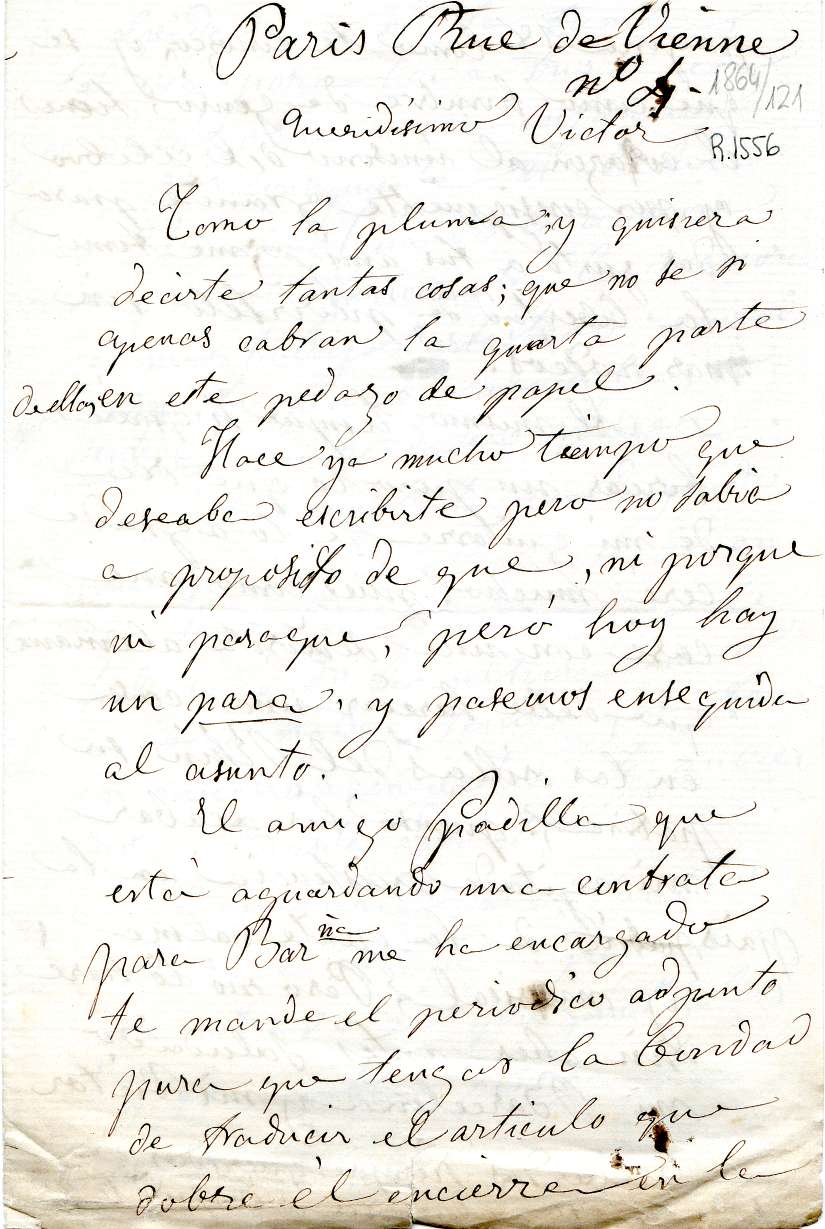 Paris Rue de Vienne
nº 4.
1864/121
R.1556
Queridísimo Victor
Tomo la pluma, y quisiera
decirte tantas cosas; que no se si
apenas cabran la quarta parte
de ellas, en este pedazo de papel.
Hace ya mucho tiempo que
deseaba escribirte pero no sabia
a proposito de que, ni porque
ni paraque, peró hoy hay
un para, y pasemos enseguida
al asunto.
El amigo Padilla que
està aguardando una contrata
para Barña me ha encargado
te mande el periodico adjunto
para que tengas la bondad
de traducir el articulo que
sobre èl encierra en la